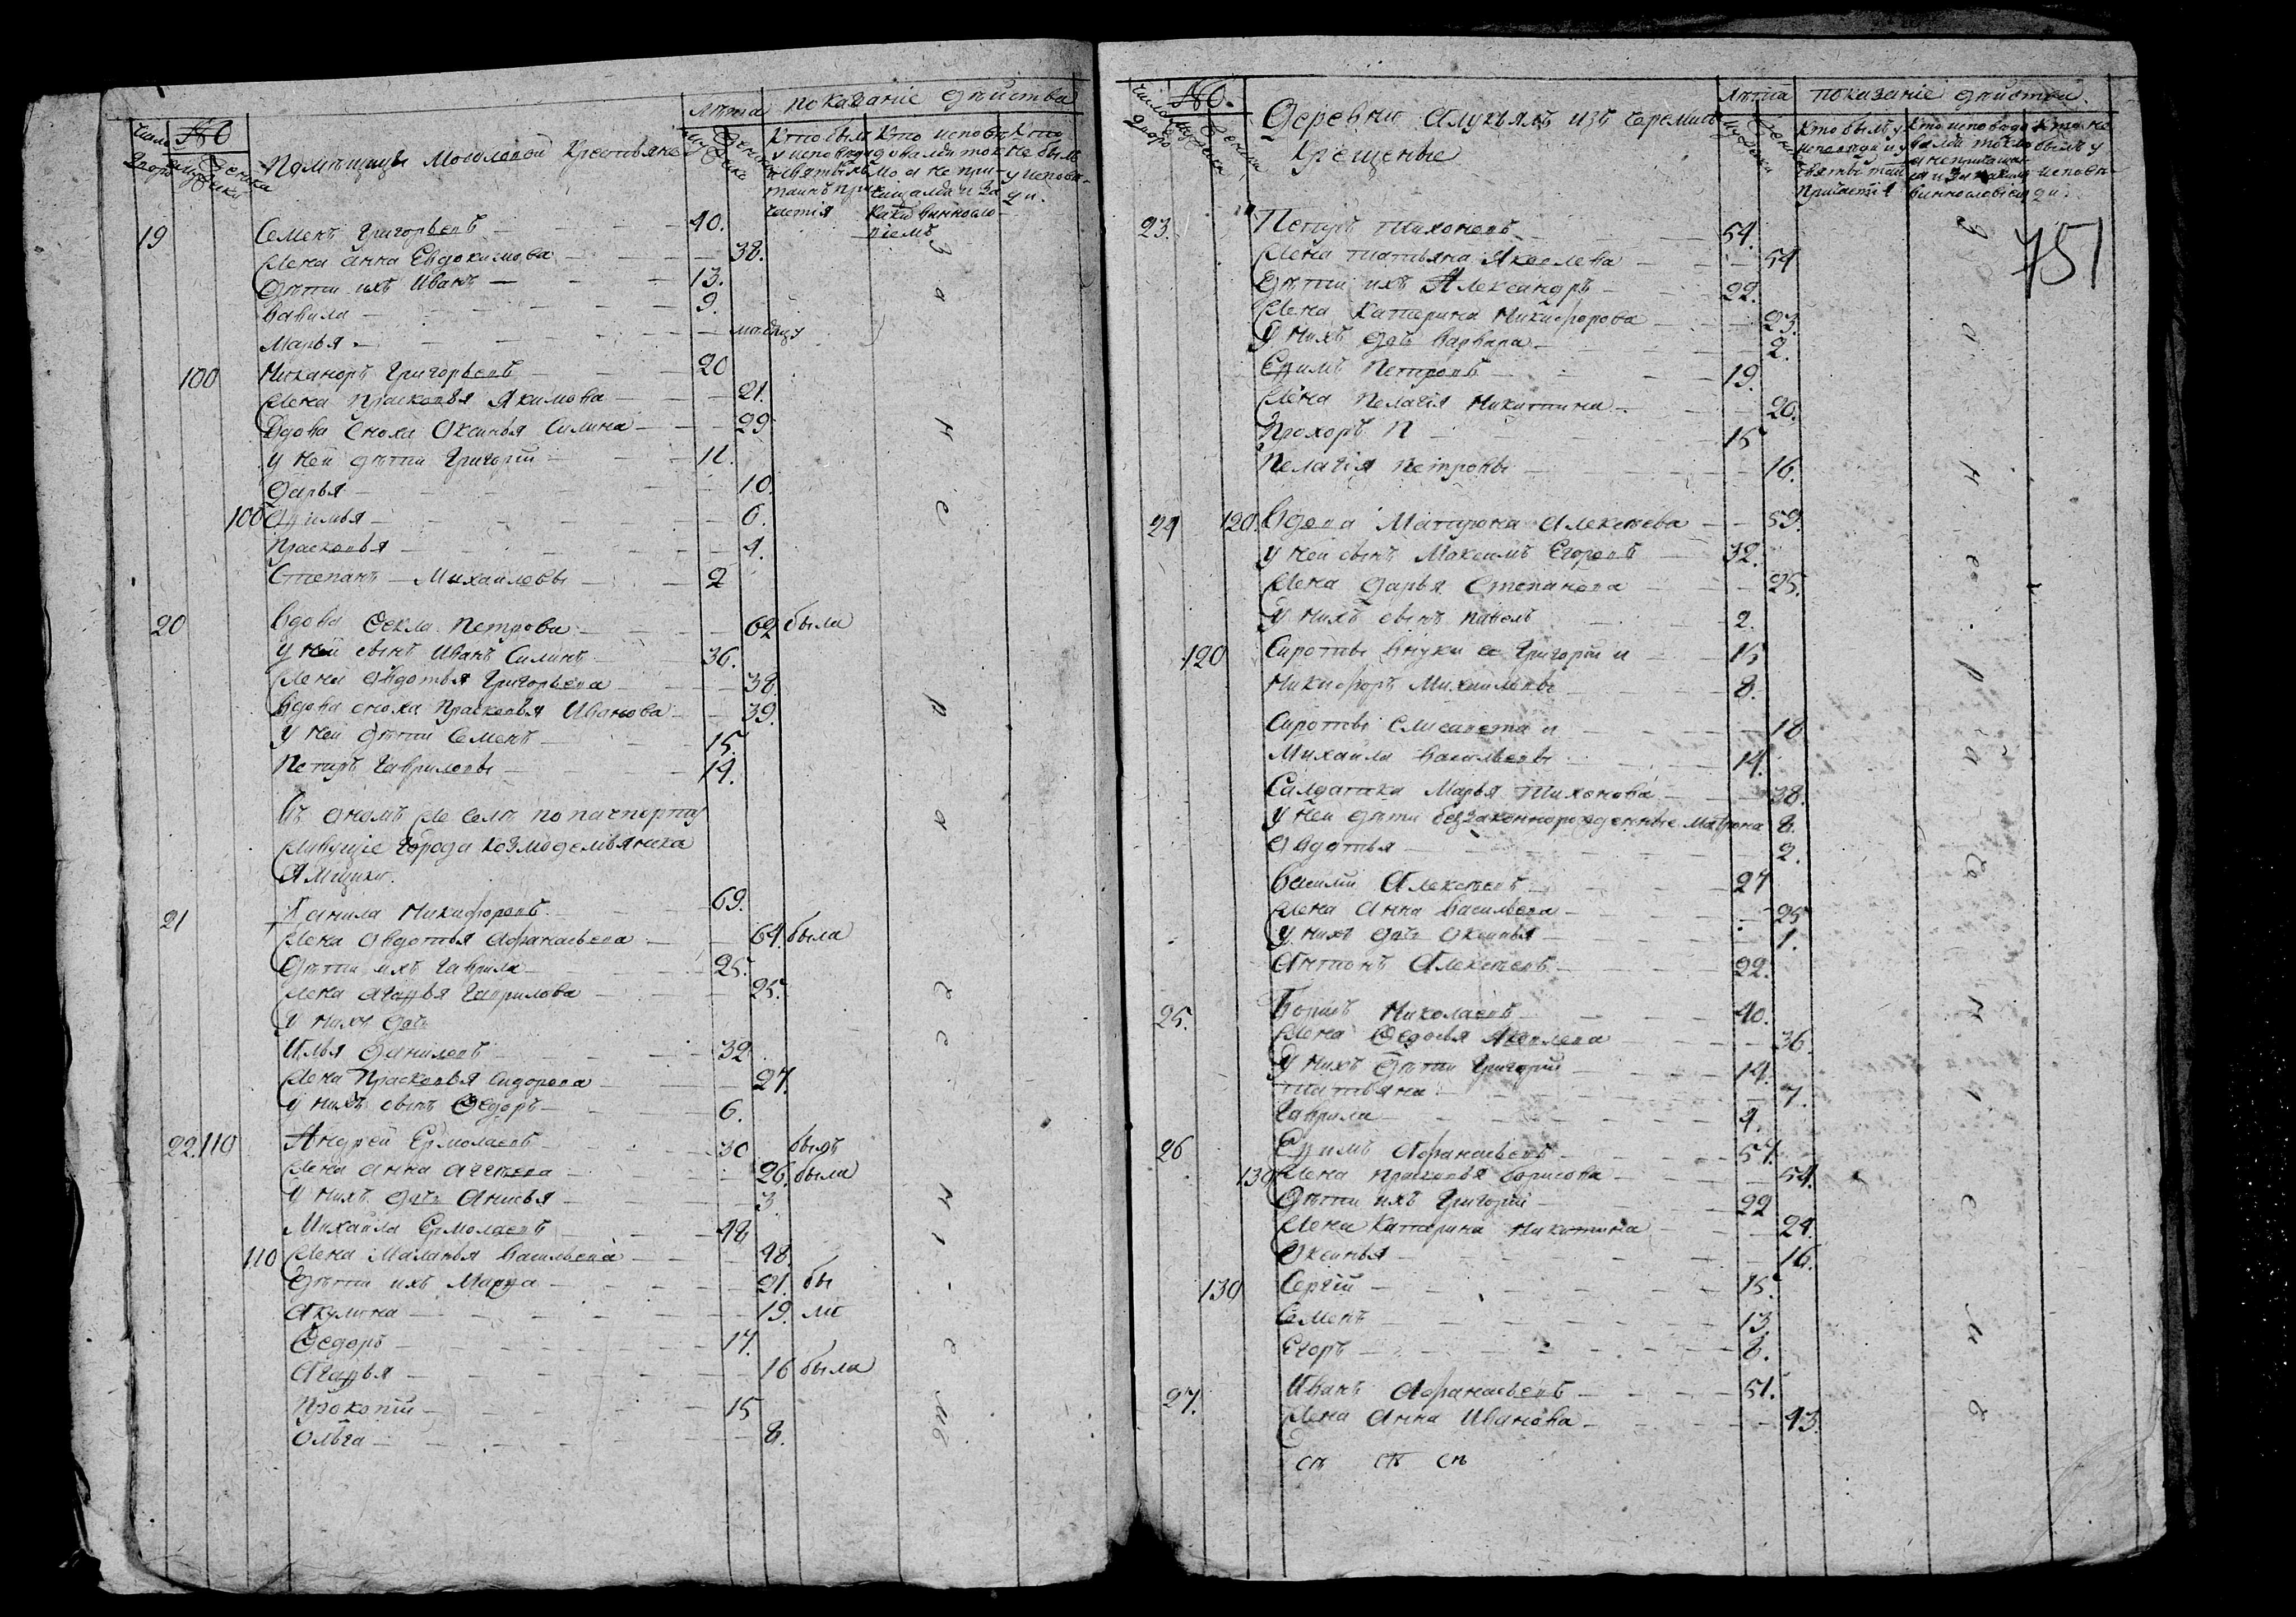 Лѣта показаніе дѣйства
Число дворъ № мужска женска Помѣщицы Мосоловой Крестьяне мужска женска
Кто былъ у исповѣди и святыхъ таинъ причастія
Кто исповѣдовался токмо а не причащался и за какимъ винословіемъ
Кто не былъ у исповѣди.
19 Семенъ Григорьевъ 40.
Жена Анна Евдокимова 38.
Дѣти ихъ Иванъ 13.
Вавила 9.
Марья
100 Никаноръ Григорьевъ 20
Жена Прасковья Якимова 21.
Вдова сноха Оксинья Силина 29
у ней дѣти Григорій 12.
Дарья 10.
100 Афимья 6.
Прасковья 4.
Степанъ Михайловы 2
20 Вдова Фекла Петрова 62 была
у ней сынъ Иванъ Силинъ 36.
Жена Авдотья Григорьева 38.
Вдова сноха Прасковья Иванова 39.
у ней дѣти Семенъ 15.
Петръ Гавриловы 14.
Въ ономъ же селѣ по пачпорту
живущіе города Козмодемьянска
Ямщики.
21 Данила Никифоровъ 69.
Жена Авдотья Афанасьева 64. была
Дѣти ихъ Гаврила 25.
Жена Агафья Гаврилова 25.
у нихъ дочь
Илья Даниловъ 32
Жена Прасковья Сидорова 27.
у нихъ сынъ Федоръ 6.
22. 110 Андрей Ермолаевъ 30 былъ
Жена Анна Агѣева 26. была
у нихъ дочь Анисья 3.
Михайла Ермолаевъ 48
110 Жена Маланья Васильева 48.
Дѣти ихъ Марфа 21. бы
Акулина 19. ли
Федоръ 17.
Агафья 16 была
Прокопій 15
Ольга 8.
за нерадѣ
Число дворъ № мужска женска Деревни Алукъялъ изъ Черемисъ
Крещеные
Лѣта показаніе дѣйства.
мужска женска
Кто былъ у исповѣди и у святыхъ таинъ причастія
Кто исповѣдовался токмо а не причащался и за какимъ винословіемъ
Кто не былъ у исповѣди.
751
23. Петръ Тихоновъ 54.
Жена Татьяна Яковлева 54
Дѣти ихъ Александръ 22.
Жена Катерина Никифорова 23.
у нихъ дочь Варвара 2.
Ефимъ Петровъ 19.
Жена Пелагія Никитина 20.
Прохоръ П 15
Пелагія Петровы 16.
24 120. Вдова Матрена Алексѣева 59.
у ней сынъ Максимъ Егоровъ 32.
Жена Дарья Степанова 25.
у нихъ сынъ Павелъ 2.
120 Сироты внуки ее Григорій и 15
Никифоръ Михайловы 8.
Сироты Елисавета и 18
Михайла Васильевы 14.
Салдатка Марья Тихонова 38.
у ней дѣти беззаконнорожденные Матрона 8.
Авдотья 2.
Василій Алексѣевъ 27
Жена Анна Васильева 25
у нихъ дочь Оксинья 1.
Антонъ Алексѣевъ 22.
25. Борисъ Николаевъ 40.
Жена Федосья Яковлева 36.
у нихъ дѣти Григорій 14.
Татьяна 7.
Гаврила 4.
26 Ефимъ Афанасьевъ 57.
130 Жена Прасковья Борисова 54.
Дѣти ихъ Григорій 22
Жена Катерина Никитина 24.
Оксинья 16.
130 Сергій 15.
Семенъ 13.
Егоръ 8.
27. Иванъ Афанасьевъ 51.
Жена Анна Иванова 43.